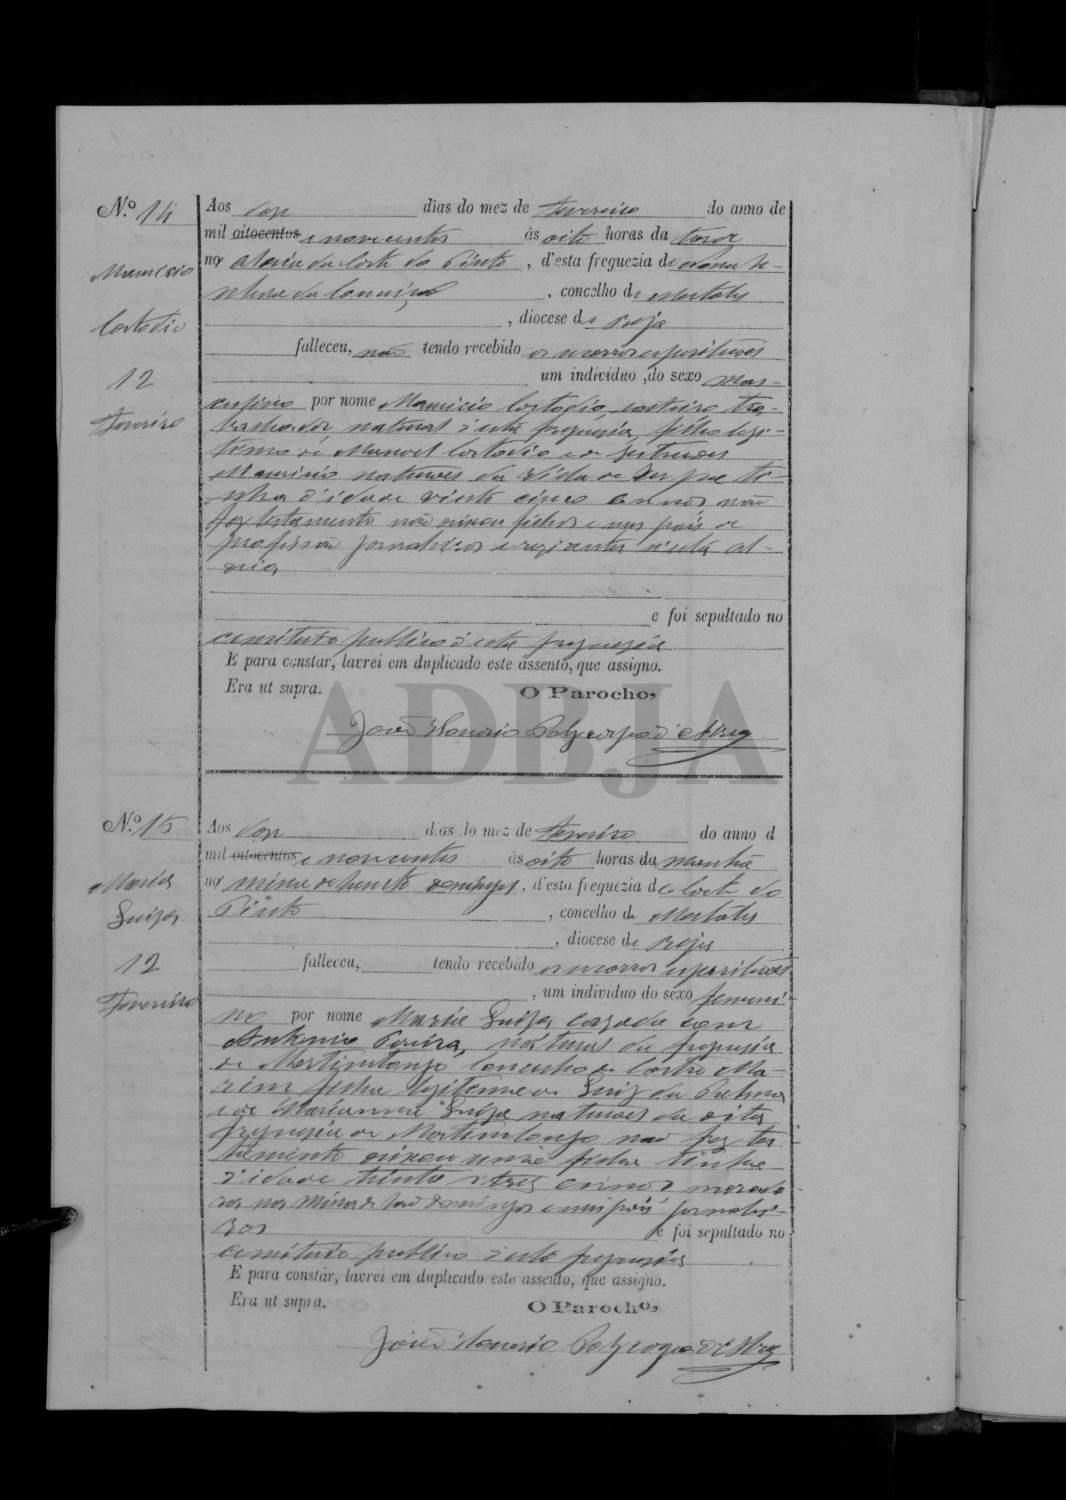 N.º 14
Mauricio
Custodio
12
Fevereiro
Aos doze dias do mez de Fevereiro do anno de
mil oitocentos e novecentos ás oito horas da tarde
na aldeia da Corte do Pinto, d'esta freguezia de
concelho de Mertola
, diocese de Beja
falleceu, não tendo recebido os socorros espirituaes
um individuo, do sexo mas-
culino por nome Mauricio Custodio, solteiro tra-
balhador natural d'esta freguezia, filho legi-
timo de Manoel Custodio e de Gertrudes
Mauricio naturaes da que ti-
nha d'idade vinte cinco annos não
fez testamento não deixou filhos e seus pais de
profissão jornaleiros e rezidentes n'esta al-
deia
e foi sepultado no
cemiterio publico d'esta freguezia
E para constar, lavrei em duplicado este assento, que assigno.
Era ut supra.
O Parocho,
José Honorio Polycarpo d'
ADBJA
N.º 15
Maria
Luiza
12
Fevereiro
Aos doze dias do mez de Fevereiro do anno d
mil oitocentos e novecentos ás oito horas da manhã
na mina de São Domingos, d'esta freguezia de Corte do
Pinto, concelho de Mertola
, diocese de Beja
falleceu, tendo recebido os socorros espirituaes
, um individuo do sexo femini-
no por nome Maria Luiza, cazada com
Antonio Pereira, natural da freguezia
de Martimlongo concelho de Castro Ma-
rim filha legitima de Luiz da Palma
e de Marianna Luiza naturaes da dita
freguezia de Martimlongo não fez tes-
tamento deixou uma filha tinha
d'idade trinta e tres annos morado-
ra na Mina de São Domingos e seus pais jornalei-
ros e foi sepultado no
cemiterio publico d'esta freguezia
E para constar, lavrei em duplicado este assento, que assigno.
Era ut supra.
O Parocho,
José Honorio Polycarpo d'